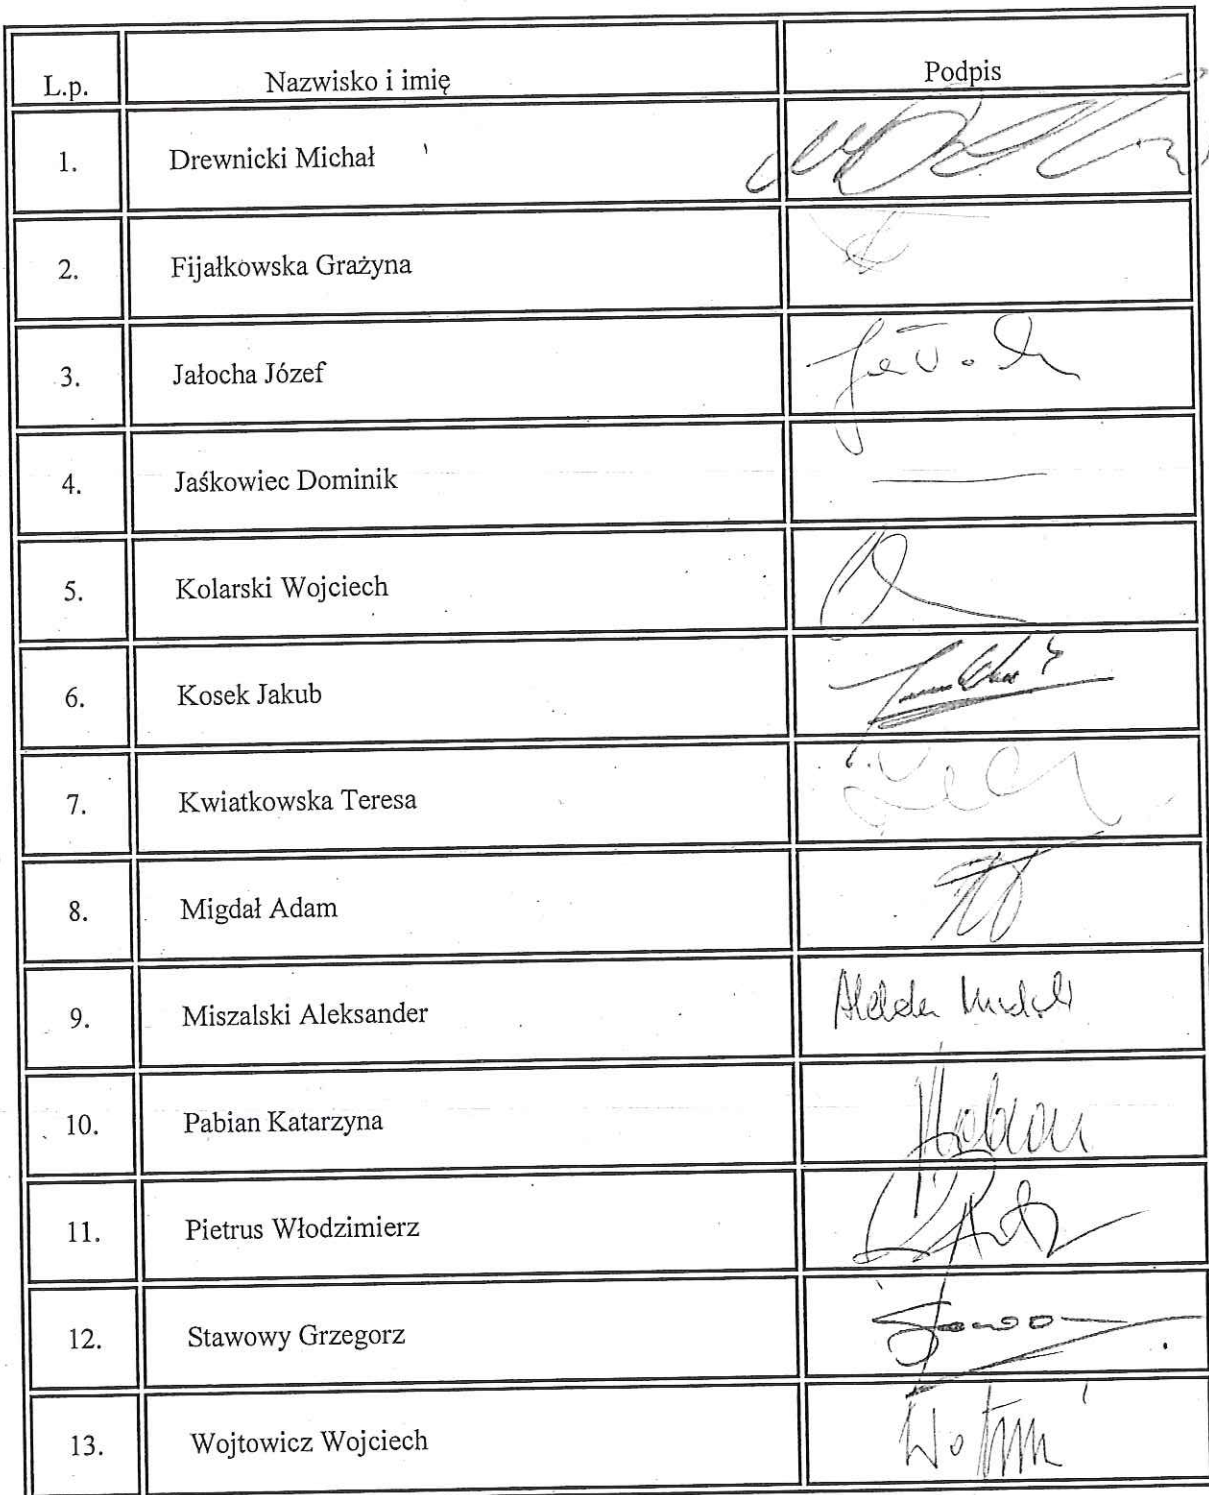 L.p. Nazwisko i imię Podpis
1. Drewnicki Michał
2. Fijałkowska Grażyna
3. Jałocha Józef
4. Jaśkowiec Dominik
5. Kolarski Wojciech
6. Kosek Jakub
7. Kwiatkowska Teresa
8. Migdał Adam
9. Miszalski Aleksander
10. Pabian Katarzyna
11. Pietrus Włodzimierz
12. Stawowy Grzegorz
13. Wojtowicz Wojciech